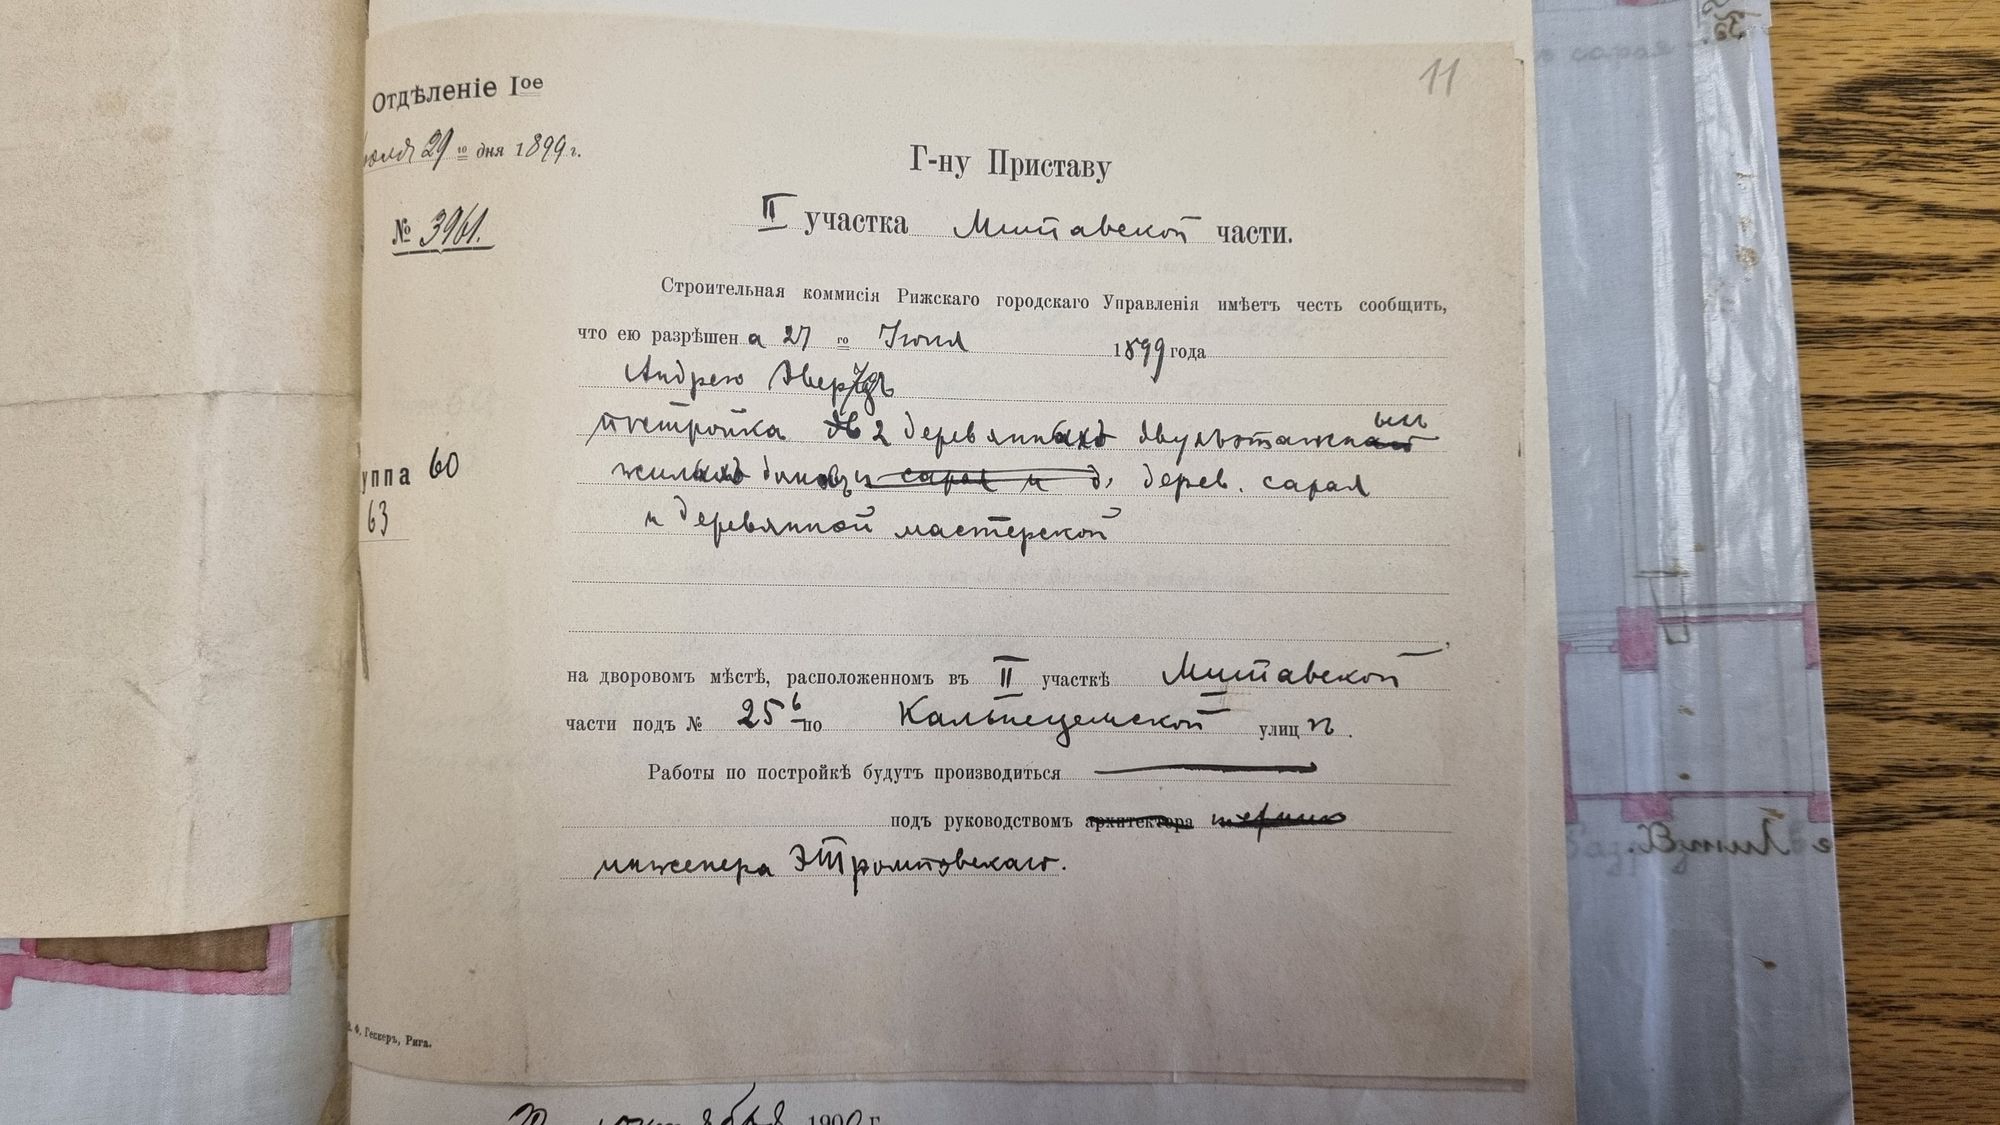 11
Отдѣленіе Iое
юля 29 го дня 1899 г.
№ 3961.
Г-ну Приставу
II участка Митавской части.
Строительная коммисія Рижскаго городскаго Управленія имѣетъ честь сообщить,
что ею разрѣшен а 27 го Іюля 1899 года
Андрею
постройка 2 деревянныхъ двухъэтажныхъ
жилыхъ домовъ и сарая и д. дерев. сарая
и деревянной мастерской
уппа 60
63
на дворовомъ мѣстѣ, расположенномъ въ II участкѣ Митавской
части подъ № 25 б по Кальнецемской улиц ѣ.
Работы по постройкѣ будутъ производиться
подъ руководствомъ архитектора
инженера Э Тромповскаго.
Ф. Геккеръ, Рига.
1900 г.